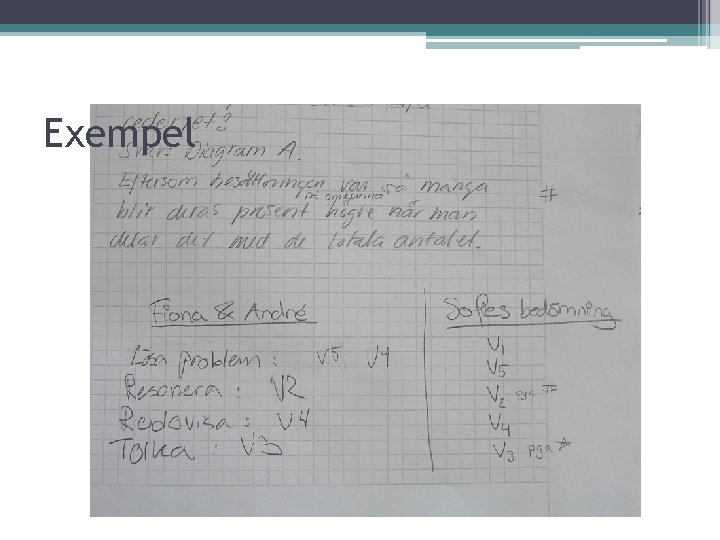 Exempel
Svar: Diagram A.
Eftersom besättningen var så många #
på ång
blir deras present högre när man
delar det med de totala antalet.
Fiona & André
Lösa problem: V5, V4
Resonera: V2
Redovisa: V4
Tolka: V3
Sofies bedömning
V1
V5
V2 pga #
V4
V3 pga *